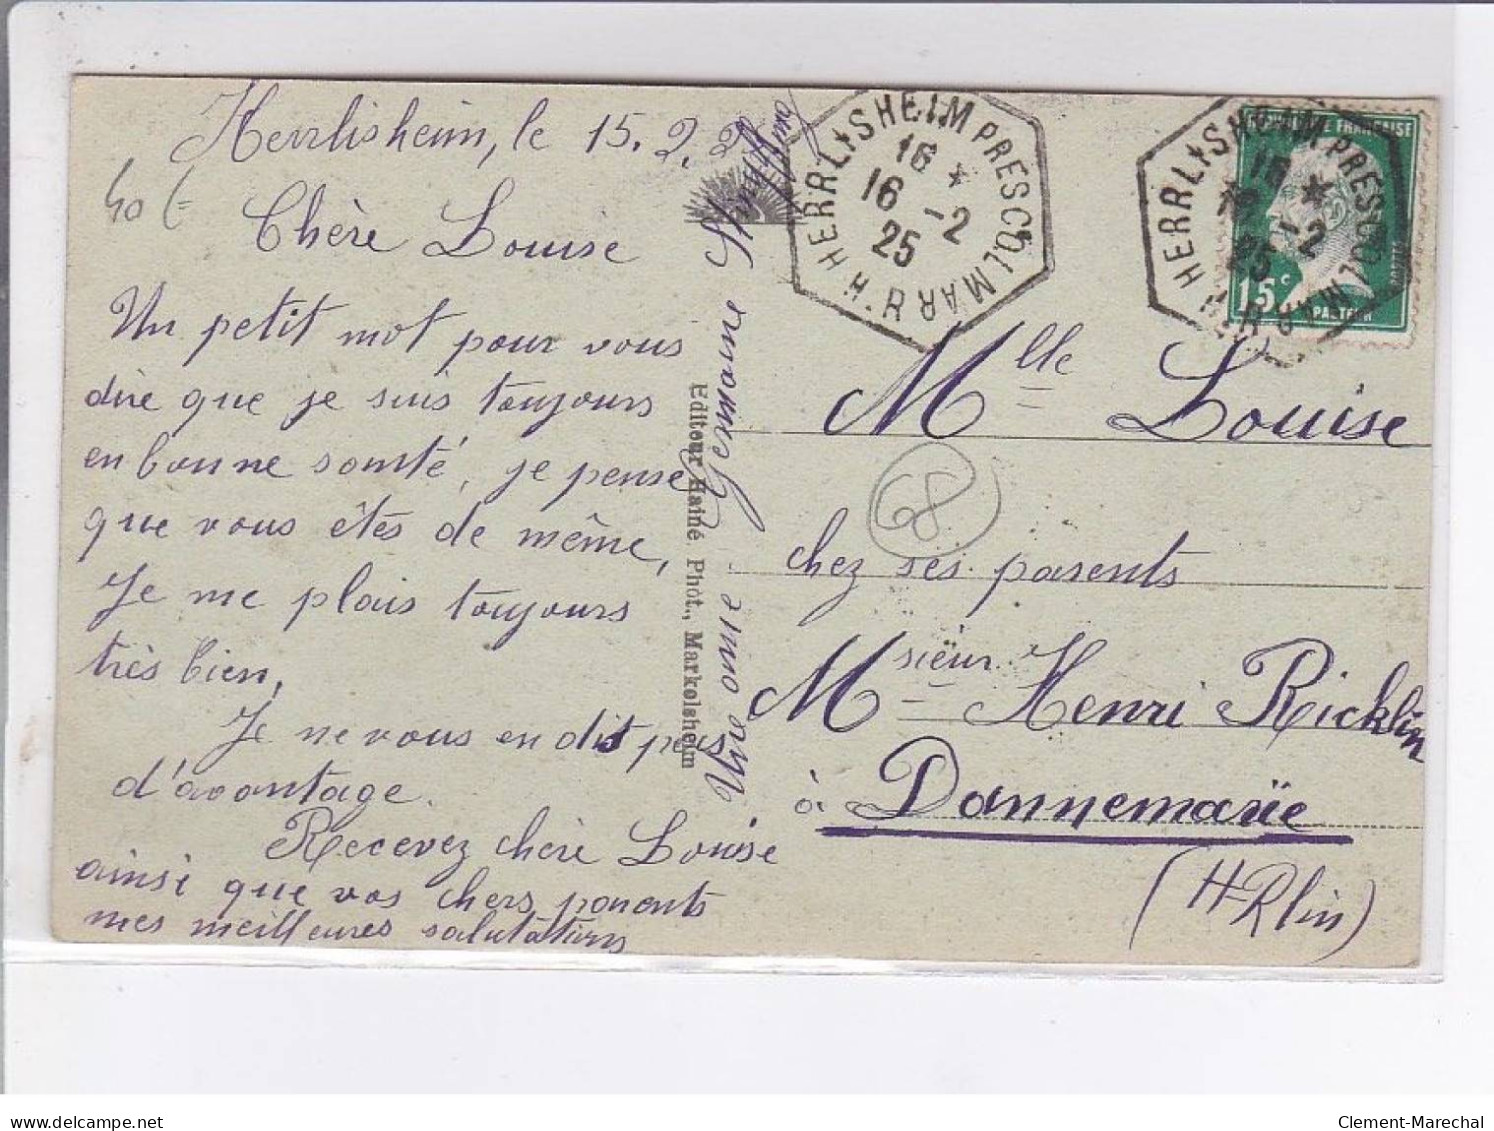 Herrlisheim, le 15. 2. 2
40 f
Chère Louise
Un petit mot pour vous
dire que je suis toujours
en bonne somté, je pense
que vous êtes de même,
Je me plais toujours
très bien,
Je ne vous en dis pas
d'avantage.
Recevez chère Louise
ainsi que vos chers parents
mes meilleures salutations
Votre amie
Editeur Hainé Phot., Markolsheim
HERRLISHEIM PRES COLMAR H.R
16 *
16 -2
25
HERRLISHEIM PRES COLMAR H.R
16 *
16 -2
25
FRANÇAISE
15c
PASTEUR
Mlle Louise
68
chez ses parents
Msieur Henri Ricklin
à Dannemarie
(H-Rhin)
Clement-Marechal